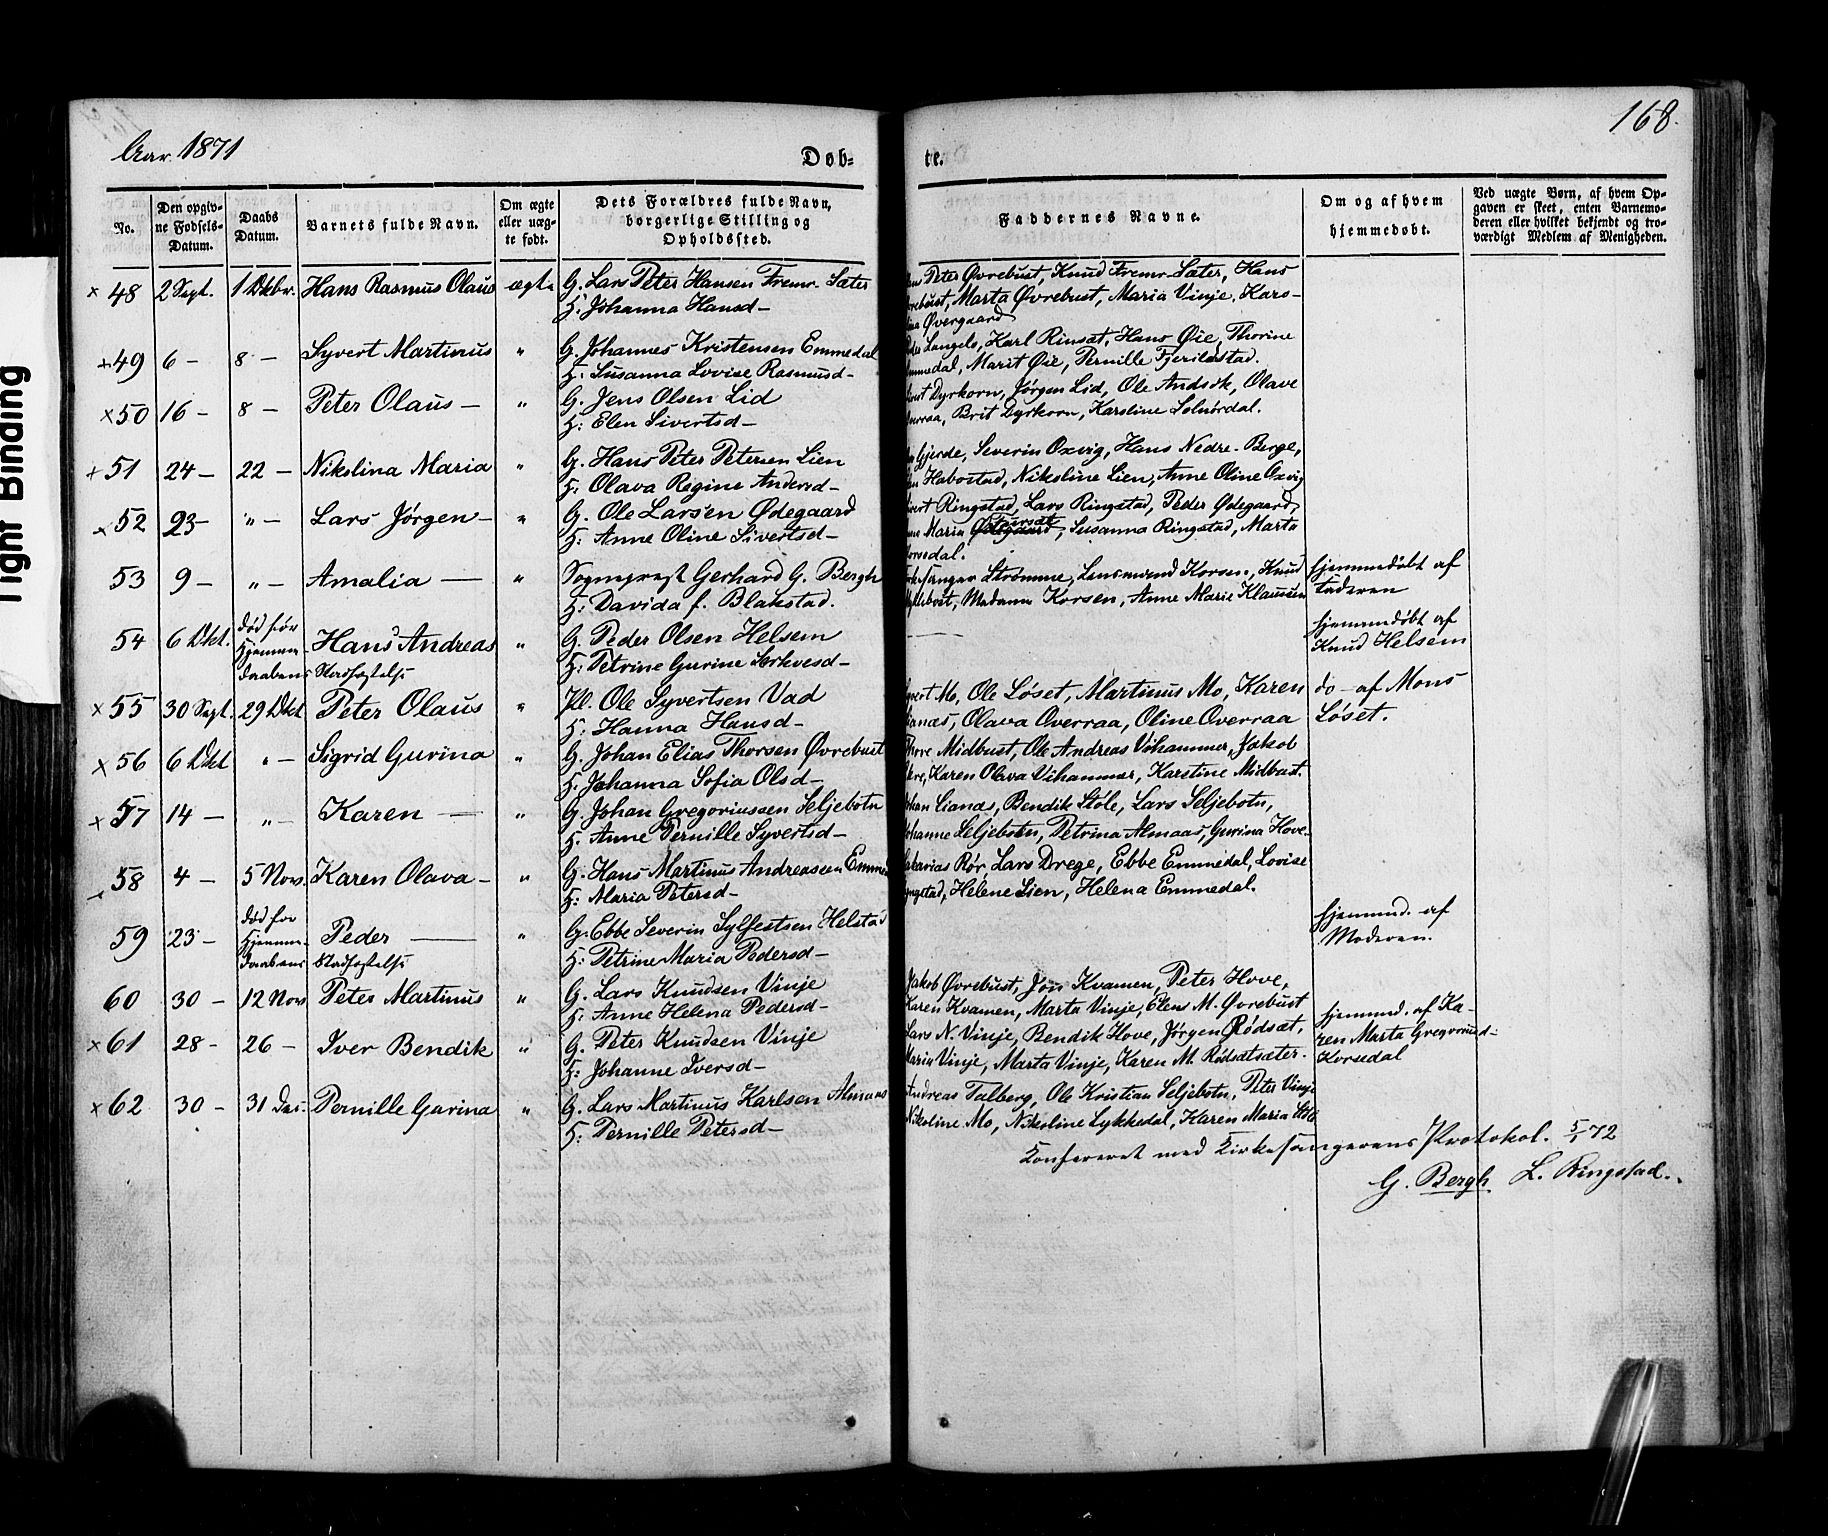 168.
Aar 1871
Døb=
te.
No.
Den opgiv-
ne Fødsels-
Datum.
Daabs
Datum.
Barnets fulde Navn.
Om ægte
eller uæg-
te født.
Dets Forældres fulde Navn,
borgerlige Stilling og
Opholdssted.
Faddernes Navne.
Om og af hvem
hjemmedøbt.
Ved uægte Børn, af hvem Op-
gaven er skeet, enten Barnemo-
deren eller hvilket bekjendt og tro-
værdigt Medlem af Menigheden.
Tight Binding
x 48 2 Sept. 1 Oktbr. Hans Rasmus Olaus ægte G. Lars Peter Hansen Fremr. Sæter
H: Johanna Hansd-
Peter Øvrebust, Knud Fremr. Sæter, Hans
Marta Øvrebust, Maria Vinje, Karo-
Øvergaard
x 49 6 - 8 - Syvert Martinus " G. Johannes Kristensen Emmedal
H: Susanna Lovise Rasmusd-
Langelo, Karl Rinsæt, Hans Øie, Thorine
Marit Øie, Pernille Fjerilstad.
x 50 16 - 8 - Peter Olaus - " G. Jens Olsen Lid
H: Elen Sivertsd-
Dyrkorn, Jørgen Lid, Ole Andsok, Olave
Brit Dyrkorn, Karoline Solnørdal.
x 51 24 - 22 - Nikolina Maria " G. Hans Peter Petersen Lien
H: Olava Regine Andersd-
Gjerde, Severin Oxvig, Hans Nedre-Berge,
Habostad, Nikoline Lien, Anne Oline Oxvig
x 52 23 - " - Lars Jørgen - " G. Ole Larsen Ødegaard
H: Anne Oline Sivertsd-
Ringstad, Lars Ringstad, Peder Ødegaard,
Maria Ødegaard, Susanna Ringstad, Marta
53 9 - " - Amalia - " Sogneprest Gerhard G. Bergh
H: Davida f. Blakstad.
Strømme, Lensmand Korsen, Knud
Madame Korsen, Anne Marie Klaussen
hjemmedøbt af
Faderen
54 6 Okt. død før
Hjemme-
daabens Stadfæstelse
Hans Andreas " G. Peder Olsen Helsem
H: Petrine Gurine
hjemmedøbt af
Knud Helsem
x 55 30 Sept. 29 Okt Peter Olaus " Ole Syvertsen Vad
H: Hanna Hansd-
Mo, Ole Løset, Martinus Mo, Karen
Lianæs, Olava Overraa, Oline Overraa
do - af Mons
Løset.
x 56 6 Okt " - Sigrid Gurina " G. Johan Elias Thorsen Øvrebust
H: Johanna Sofia Olsd-
Midbust, Ole Andreas Vihammer, Jakob
Karen Olava Vihammer, Karstine Midbust.
x 57 14 - " - Karen - " G. Johan Gregoriussen Seljebotn
H: Anne Pernille Syvertsd-
Johan Lianæs, Bendik Stole, Lars Seljebotn,
Johanne Seljebotn, Petrina Almaas, Gurina Hove-
58 4 - 5 Nov. Karen Olava - " G. Hans Martinus Andreassen
H: Maria Petersd-
Rør, Lars Drege, Ebbe Emmedal, Lovise
Helene Lien, Helena Emmedal.
59 23 - død før
Hjemme-
daabens Stadfæstelse
Peder - " G. Ebbe Severin Sylfestsen Helstad
H: Petrine Maria Pedersd-
hjemmd. af
Moderen.
60 30 - 12 Nov Peter Martinus " G. Lars Knudsen Vinje
H: Anne Helena Pedersd-
Jakob Øvrebust, Jon Kvamen, Peter Hove,
Karen Kvamen, Marta Vinje, Elens M. Øvrebust
hjemmd. af Ka-
ren Marta Gregoriusd-
Korsedal
x 61 28 - 26 - Iver Bendik " G. Peter Knudsen Vinje
H: Johanne Iversd-
Lars N. Vinje, Bendik Hove, Jørgen Rødsæt,
Maria Vinje, Marta Vinje, Karen M. Rødsætsæter.
x 62 30 - 31 Des. Pernille Garina " G. Lars Martinus Karlsen Almaas
H: Pernille Petersd-
Andreas Talberg, Ole Kristian Seljebotn, Peter Vinje
Nikoline Mo, Nikoline Lykkedal, Karen Maria
Konfereret med Kirkesangerens Protokol. 5/1 72
G. Bergh L. Ringstad.